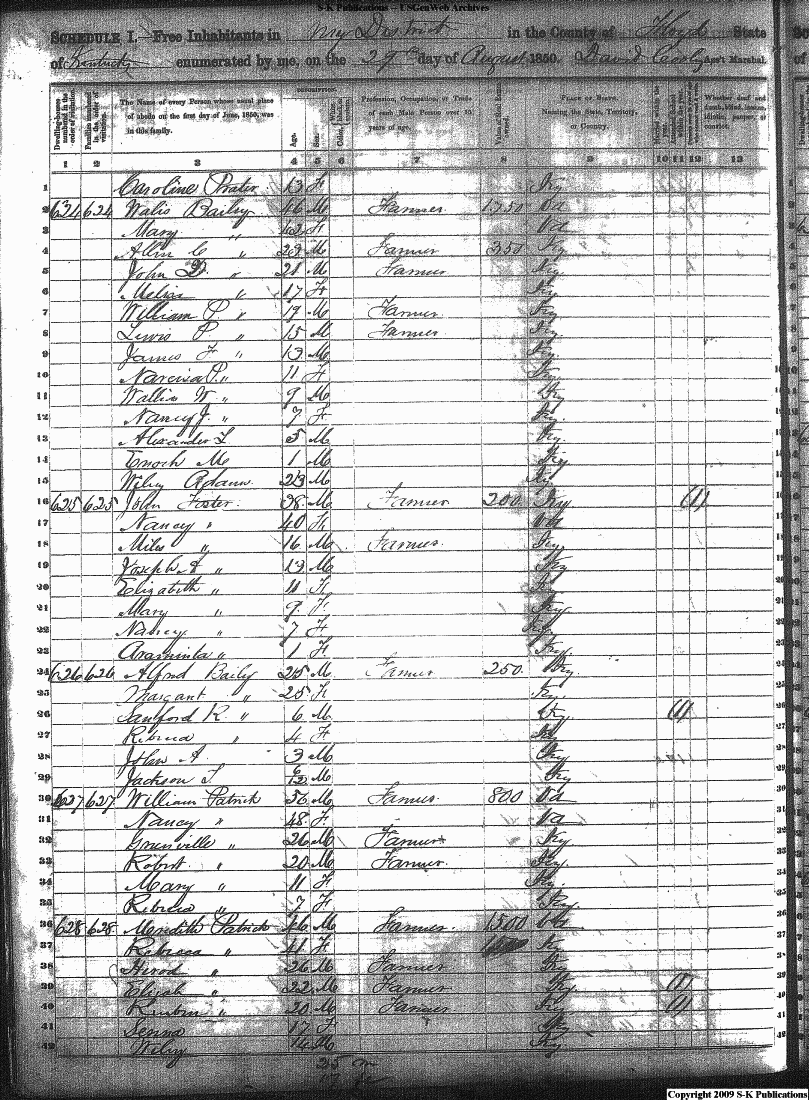 S-K Publications - USGenWeb Archives
SCHEDULE I.—Free Inhabitants in My District in the County of Floyd State
of Kentucky enumerated by me, on the 29th day of August 1850. David Cooly Ass't Marshal.
DESCRIPTION.
Dwelling-houses numbered in the order of visitation.
Families numbered in the order of visitation.
The Name of every Person whose usual place of abode on the first day of June, 1850, was in this family.
Age.
Sex.
Profession, Occupation, or Trade of each Male Person over 15 years of age.
Value of Real Estate owned.
PLACE OF BIRTH. Naming the State, Territory, or Country.
Whether deaf and dumb, blind, insane, idiotic, pauper, or convict.
1 2 3 4 5 6 7 8 9 10 11 12 13
1 Caroline Prater 13 F Ky
2 624 624 Walis Baily 46 M Farmer 1250 Va
3 Mary " F Va
4 Allen C " 23 M Farmer 350 Ky
5 John D. " 21 M Farmer Ky
6 " 17 F Ky
7 William P " 19 M Farmer Ky
8 Lewis P. " 15 M Farmer Ky
9 James F " 13 M Ky
10 Narcissa P. " 11 F Ky
11 Wallis W " 9 M Ky
12 Nancy J. " 7 F Ky.
13 Alexander L 5 M Ky.
14 Enoch M 1 M Ky
15 Wiley Adams 23 M Ky
16 625 625 John Foster 38 M Farmer 200 Ky (1)
17 Nancy " 40 F Va
18 Miles " 16 M Farmer Ky
19 Joseph A " 13 M Ky
20 Elizabeth " 11 F Ky
21 Mary " 9 F Ky
22 Nancy " 7 F Ky
23 Araminta " 1 F Ky.
24 626 626 Alfred Baily 25 M Farmer 250 Ky.
25 Margaret " 25 F Ky.
26 Sanford R. " 6 M Ky (1)
27 Rebecca " 4 F Ky
28 John A 3 M Ky
29 Jackson L 6/12 M Ky
30 627 627 William Patrick 56 M Farmer 800 Va
31 Nancy " 48 F Va
32 Greenville " 26 M Farmer Ky
33 Robert " 20 M Farmer Ky.
34 Mary " 11 F Ky.
35 Rebecca " 7 F Ky.
36 628 628 Meredith Patrick 46 M Farmer 1500 Va
37 Rebecca " 41 F Ky
38 Hirod " 26 M Farmer Ky
39 Elijah " 22 M Farmer Ky (1)
40 Reuben " 20 M Farmer Ky (1)
41 17 F Ky
42 Wiley 14 M Ky
25 m
17 fe
Copyright 2009 S-K Publications